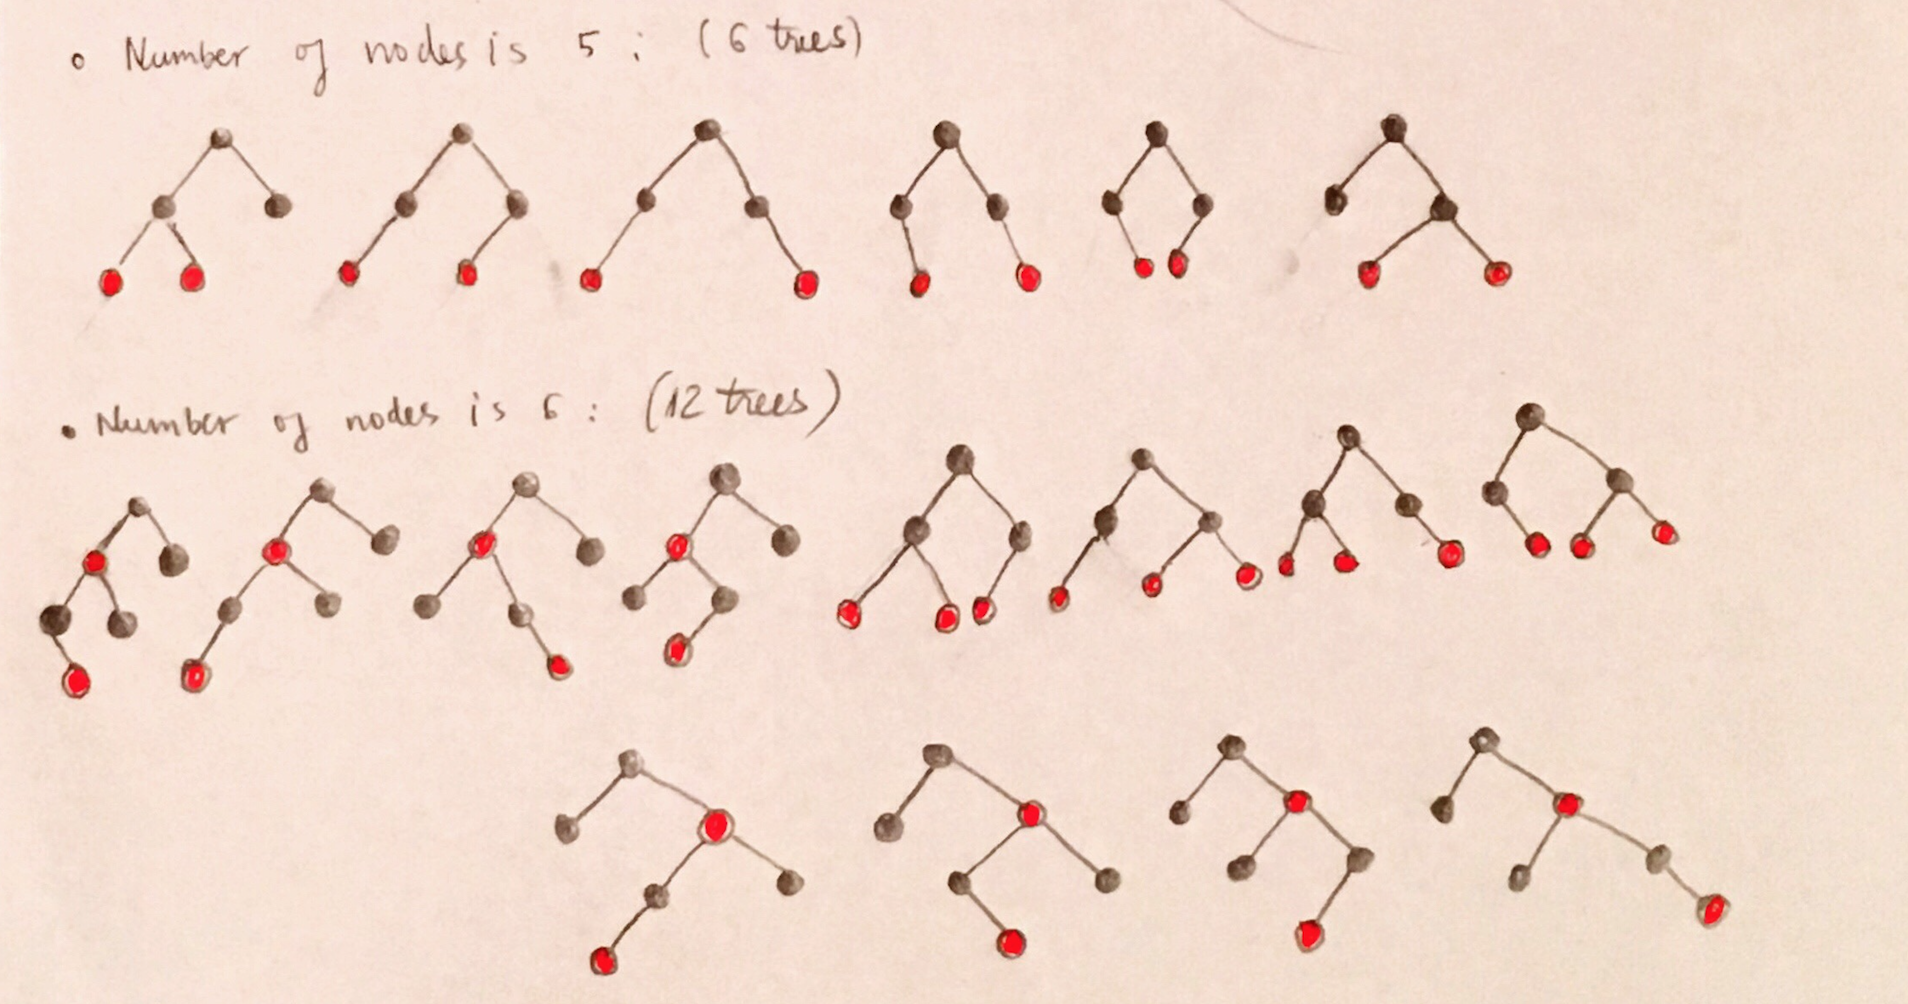 • Number of nodes is 5 : (6 trees)
• Number of nodes is 6 : (12 trees)